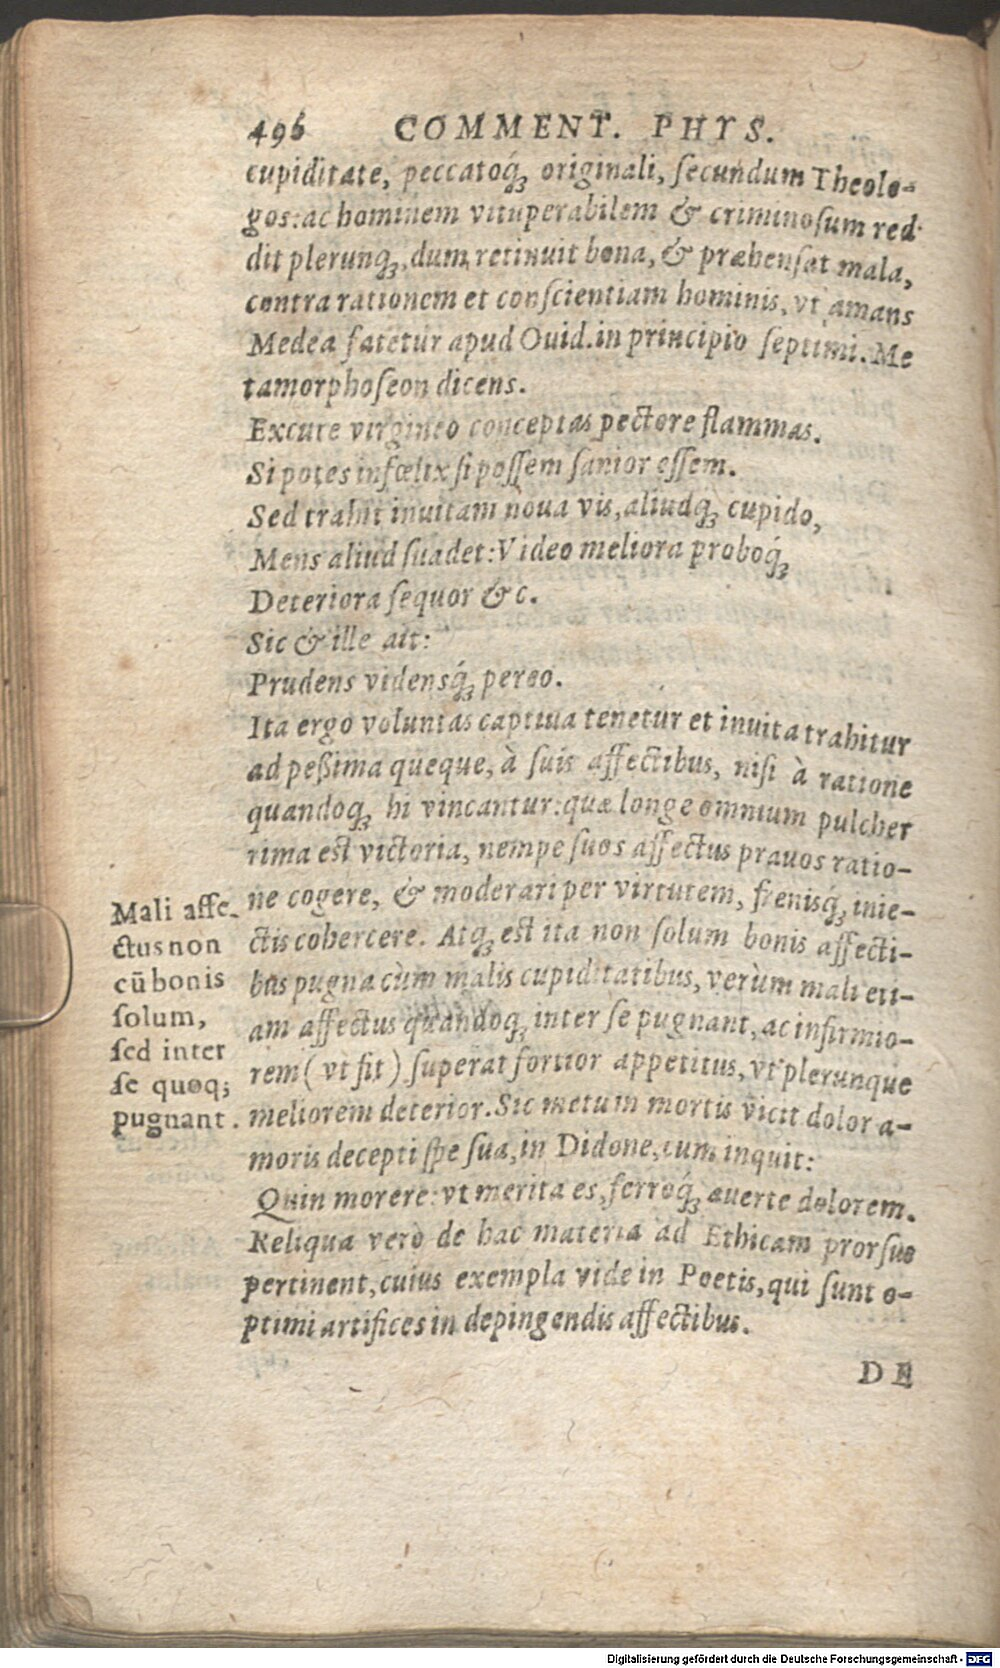 496 COMMENT. PHYS.
cupiditate, peccatoq́ꝫ originali, ſecundum Theolo-
gos: ac hominem vituperabilem & criminoſum red
dit plerunqꝫ, dum retinuit bona, & præhenſat mala,
contra rationem et conſcientiam hominis, vt amans
Medea fatetur apud Ouid. in principio ſeptimi. Me
tamorphoſeon dicens.
Excute virgineo conceptas pectore flammas.
Si potes infœlix ſi poſſem ſanior eſſem.
Sed trahit inuitam noua vis, aliudqꝫ cupido,
Mens aliud ſuadet: Video meliora proboq́ꝫ
Deteriora ſequor &c.
Sic & ille ait:
Prudens vidensq́ꝫ pereo.
Ita ergo voluntas captiua tenetur et inuita trahitur
ad peßima queque, à ſuis affectibus, niſi à ratione
quandoqꝫ hi vincantur: quæ longe omnium pulcher
rima est victoria, nempe ſuos affectus prauos ratio-
ne cogere, & moderari per virtutem, frenisq́ꝫ inie-
ctis cohercere. Atqꝫ est ita non ſolum bonis affecti-
bus pugna cùm malis cupiditatibus, verùm mali eti-
am affectus quandoqꝫ inter ſe pugnant, ac infirmio-
rem (vt fit) ſuperat fortior appetitus, vt plerunque
meliorem deterior. Sic metum mortis vicit dolor a-
moris decepti ſpe ſua, in Didone, cum inquit:
Quin morere: vt merita es, ferroq́ꝫ auerte dolorem.
Reliqua verò de hac materia ad Ethicam prorſus
pertinent, cuius exempla vide in Poetis, qui ſunt o-
ptimi artifices in depingendis affectibus.
DE
Mali affe-
ctus non
cū bonis
ſolum,
ſed inter
ſe quoq;
pugnant.
Digitalisierung gefördert durch die Deutsche Forschungsgemeinschaft - DFG